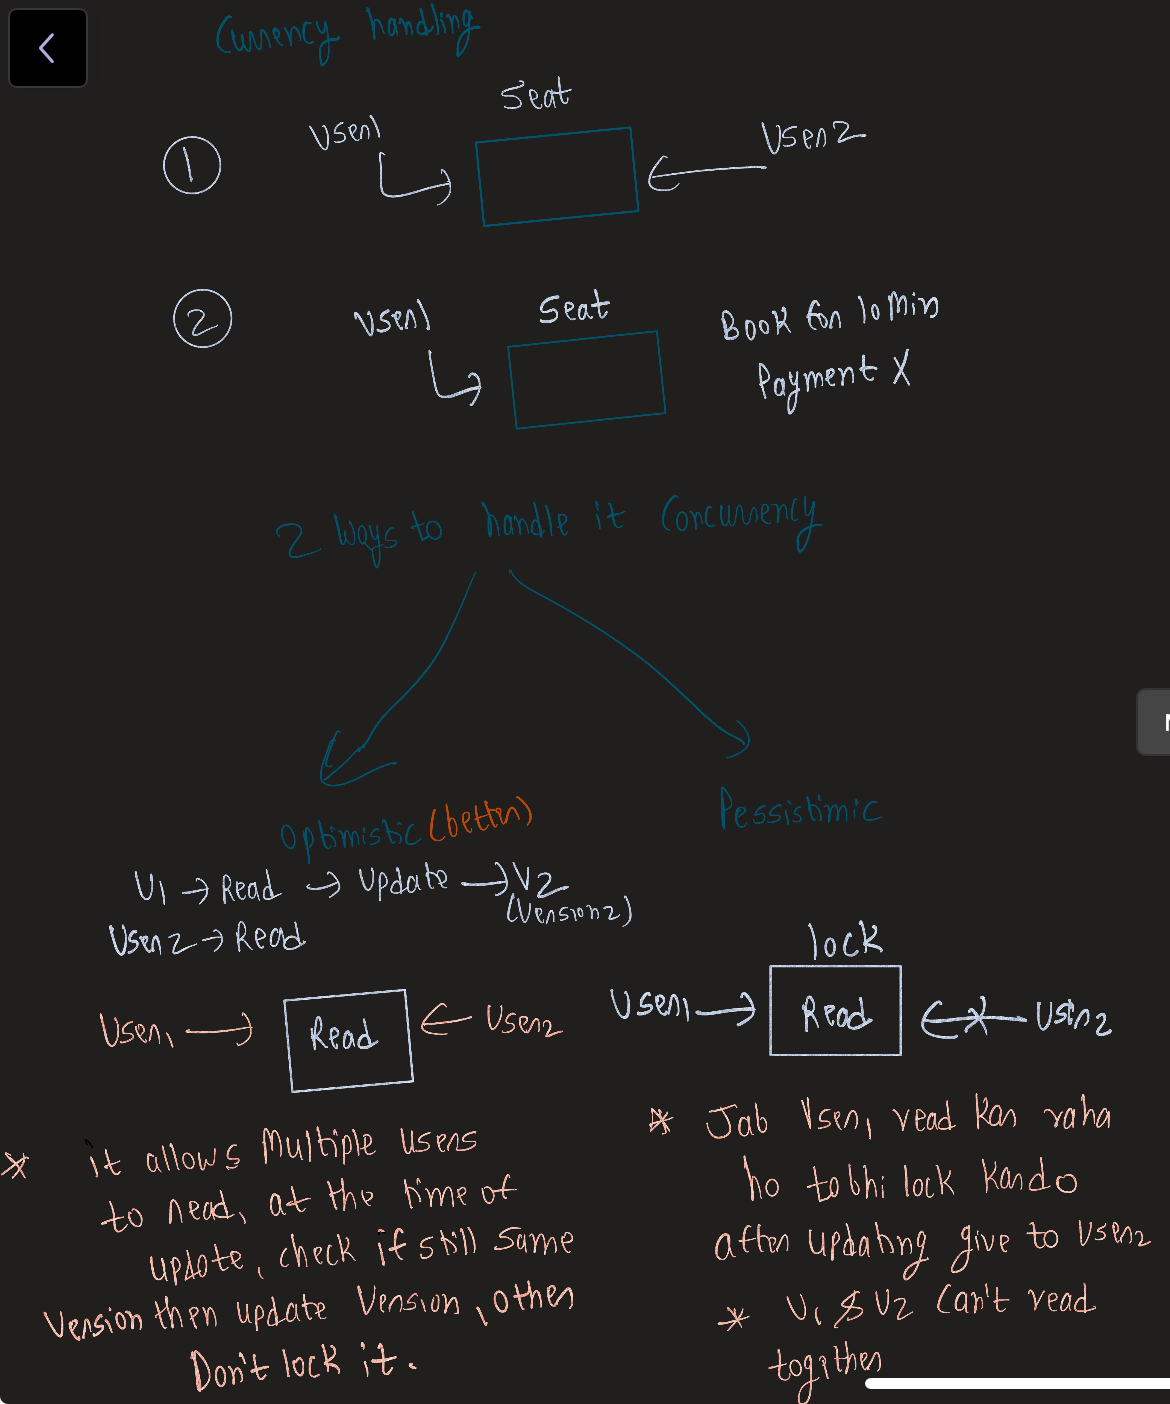 Currency handling
Seat
User1
User2
1
2
User1
Seat
Book for 10 Min
Payment X
2 Ways to handle it Concurrency
Optimistic (better)
Pessistimic
U1 → Read → Update → V2
(Version2)
User2 → Read
lock
User1 → Read ← User2
User1 → Read ← User2
* it allows Multiple Users
to read, at the time of
update, check if still same
Version then update Version, other
Don't lock it.
* Jab User1 read kar raha
ho tobhi lock kardo
after updating give to User2
* U1 & U2 Can't read
togither